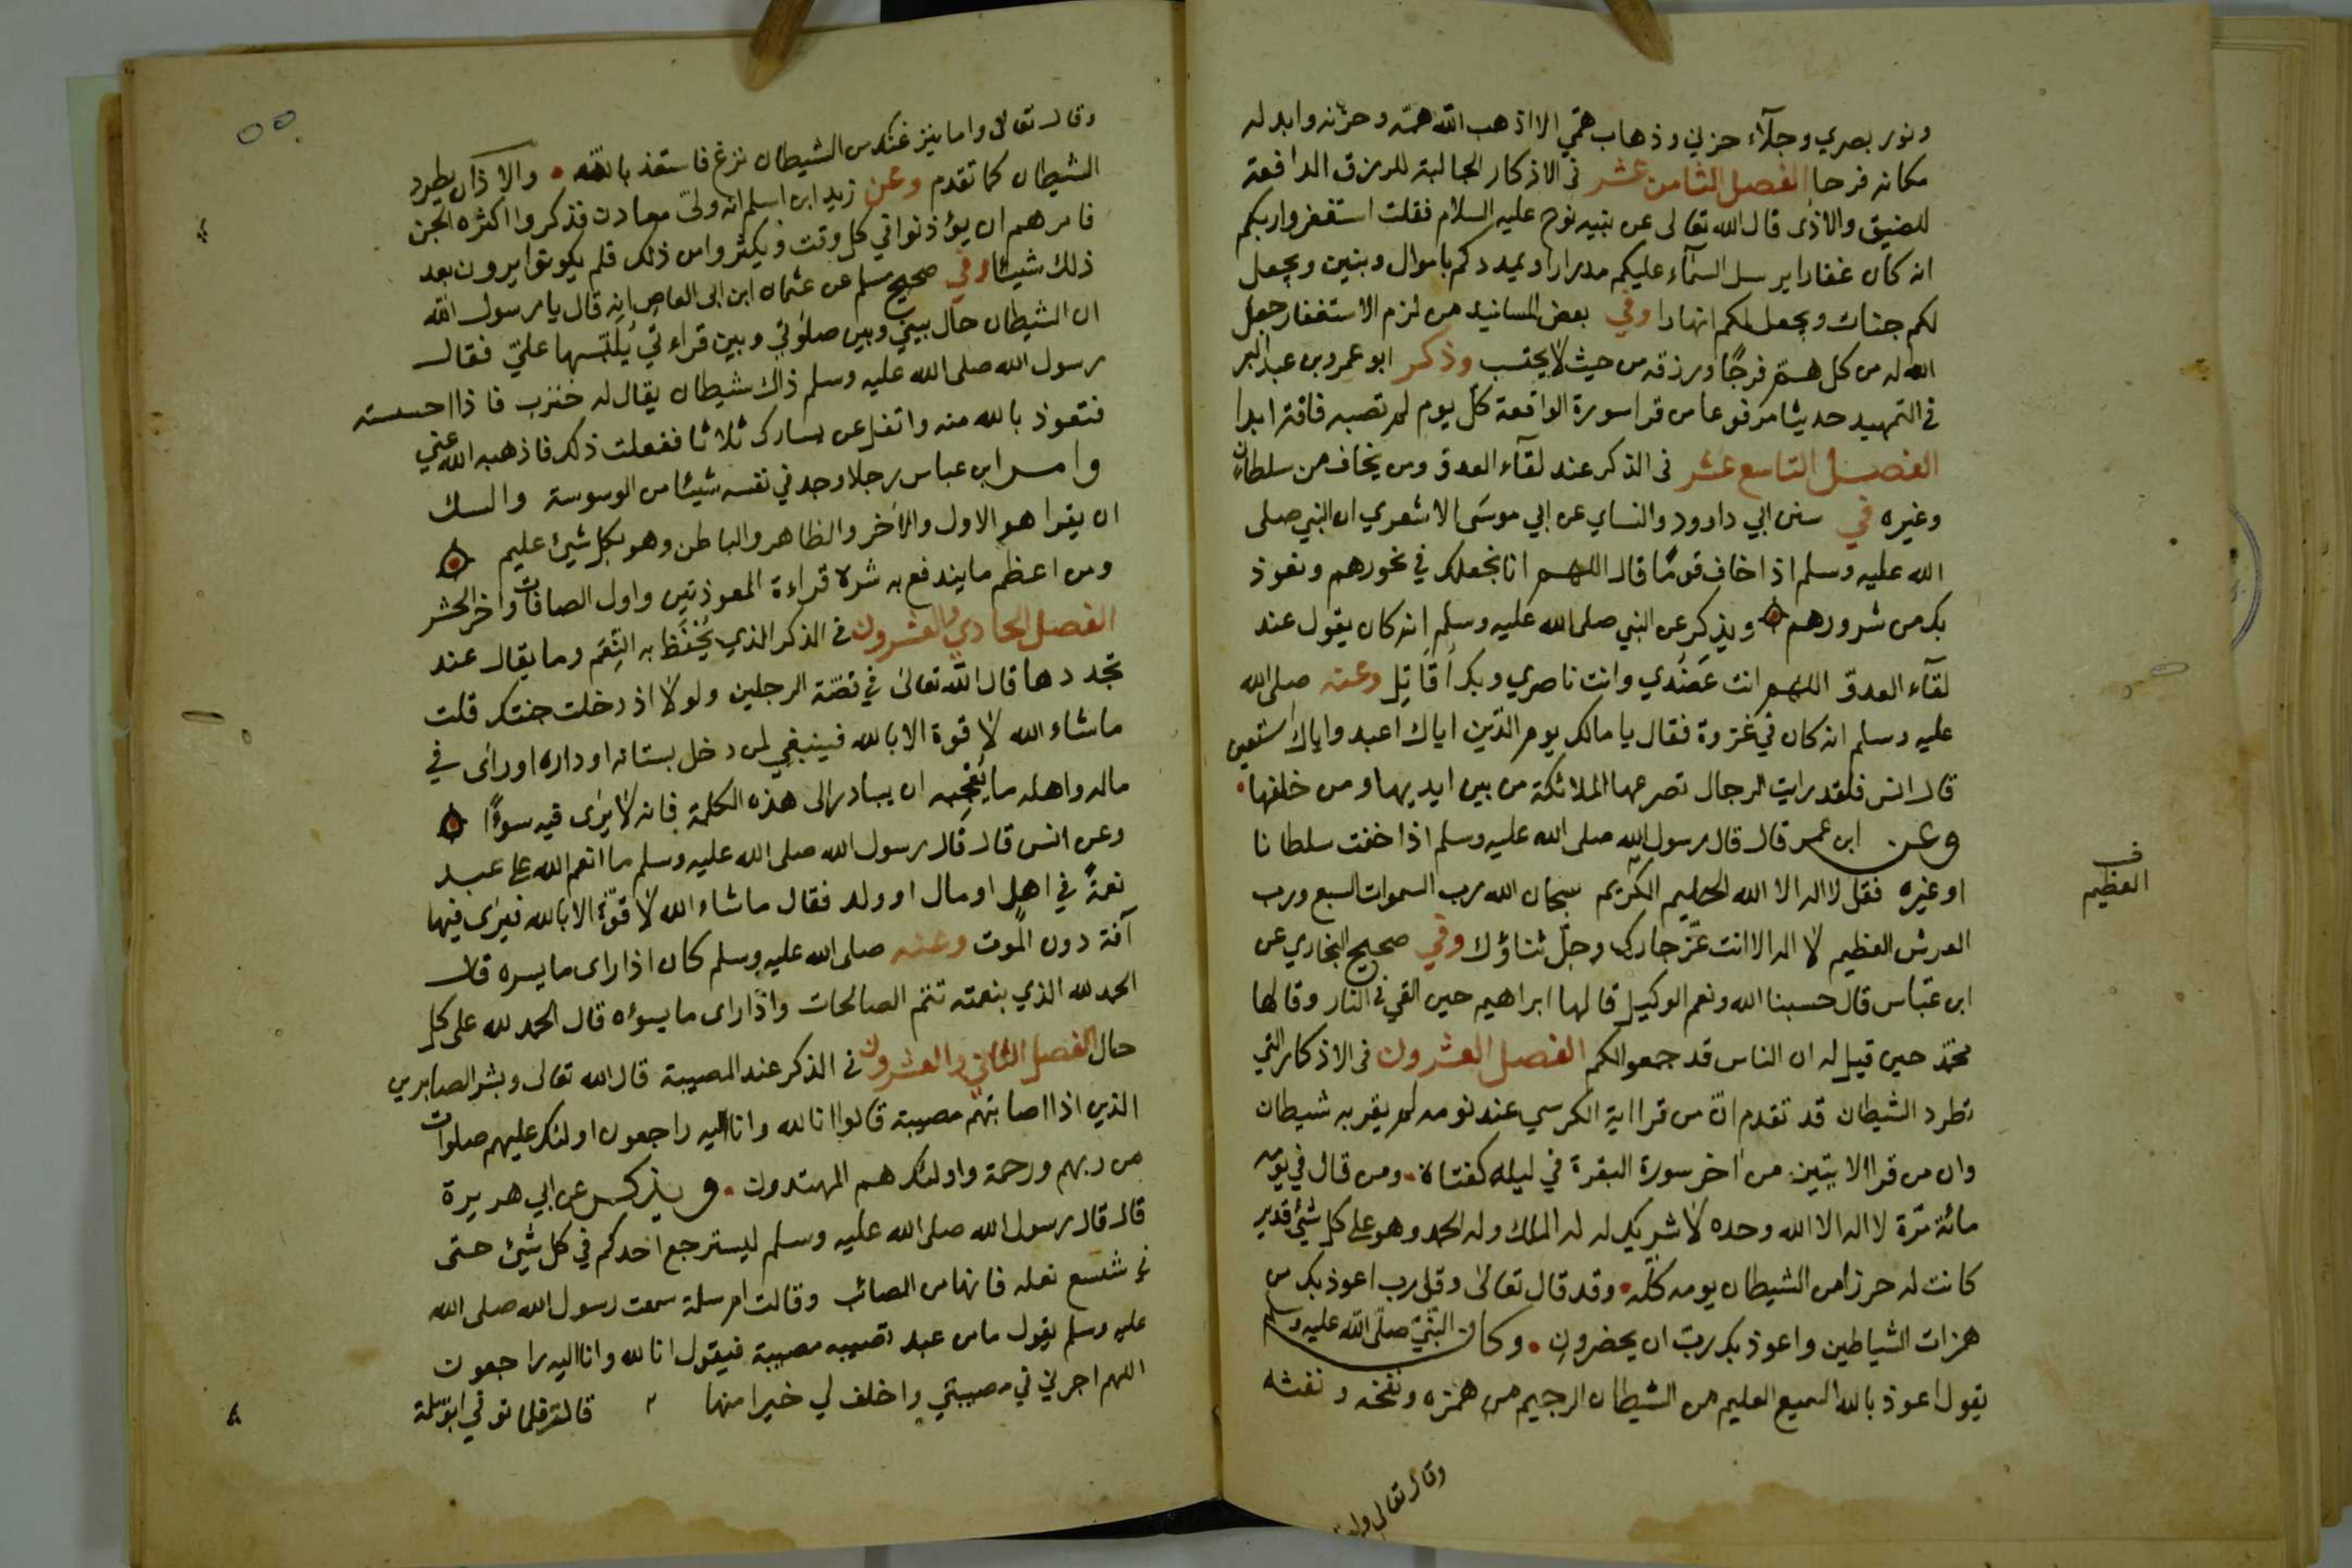 ونور بصري وجلآء حزني وذهاب همّي الا اذهب الله همّه وحزنه وابدله
مكانه فرحا الفصل الثامن عشر في الاذكار الجالبة للرزق الدافعة
للضيق والاذى قال الله تعالى عن نبيه نوح عليه السلام فقلت استغفروا ربكم
انه كان غفارا يرسل السمآء عليكم مدرارا ويمددكم باموال وبنين ويجعل
لكم جنات ويجعل لكم انهارا وفي بعض المسانيد من لزم الاستغفار جعل
الله له من كل همّ فرجًا ورزقه من حيث لا يحتسب وذكر ابو عمرو بن عبد البر
في التمهيد حديثا مرفوعا من قرا سورة الواقعة كل يوم لم تصبه فاقة ابدا
الفصل التاسع عشر في الذكر عند لقآء العدو ومن يخاف من سلطان
وغيره في سنن ابي داوود والنساي عن ابي موسى الاشعري ان النبي صلى
الله عليه وسلم اذا خاف قومًا قال اللهم انا نجعلك في نحورهم ونعوذ
بك من شرورهم ويذكر عن النبي صلى الله عليه وسلم انه كان يقول عند
لقآء العدوّ اللهم انت عَضُدي وانت ناصري وبك اُقَاتِل وعنه صلى الله
عليه وسلم انه كان في غزوة فقال يا مالك يوم الدّين اياك اعبد واياك استعين
قال انس فلقد رايت الرجال تصرعها الملائكة من بين ايديها ومن خلفها
وعن ابن عمر قال قال رسول الله صلى الله عليه وسلم اذا خفت سلطانا
او غيره فقل لا اله الا الله الحليم الكريم سبحان الله رب السموات السبع ورب
العرش العظيم لا اله الا انت عَزّ جارك وجلّ ثناؤك وفي صحيح البخاري عن
ابن عبّاس قال حسبنا الله ونعم الوكيل قالها ابراهيم حين القي في النار وقالها
محمّد حين قيل له ان الناس قد جمعوا لكم الفصل العشرون في الاذكار التي
تطرد الشيطان قد تقدم انّ من قرا اية الكرسي عند نومه لم يقربه شيطان
وان من قرا الايتين من اخر سورة البقرة في ليله كفتاه ومن قال في يوم
مائة مّرة لا اله الا الله وحده لا شريك له له الملك وله الحمد وهو على كل شيئ قدير
كانت له حرزا من الشيطان يومه كلّه وقد قال تعالى وقل رب اعوذ بك من
همزات الشياطين واعوذ بك ربّ ان يحضرون وكان النّبيّ صلّى الله عليه وسلم
يقول اعوذ بالله السميع العليم من الشيطان الرجيم من همزه ونفخه ونفثه
وقال تعالى
العظيم
وقال تعالى واما ينزغنك من الشيطان نزغ فاستعذ بالله والاذان يطرد
الشيطان كما تقدم وعن زيد ابن اسلم انه ولىّ معادن فذكروا اكثره الجن
فامرهم ان يؤذنوا في كل وقت ويكثروا من ذلك فلم يكونوا يرون بعد
ذلك شيئا وفي صحيح مسلم عن عثمان ابن ابي العاص انه قال يا رسول الله
ان الشيطان حال بيني وبين صلوتي وبين قراءتي يُلَبّسها عليّ فقال
رسول الله صلى الله عليه وسلم ذاك شيطان يقال له خنزب فاذا احسسته
فتعوذ بالله منه واتفل عن يسارك ثلاثا ففعلت ذلك فاذهبه الله عني
وامر ابن عباس رجلا وجد في نفسه شيئا من الوسوسة والسك
ان يقرا هو الاول والآخر والظاهر والباطن وهو بكل شيئ عليم
ومن اعظم ما يندفع به شره قراءة المعوذتين واول الصافات واخر الحشر
الفصل الحادي والعشرون في الذكر الذي يُحْفَظ به النِّعَم وما يقال عند
تجددها قال الله تعالى في قصّة الرجلين ولولا اذ دخلت جنتك قلت
ماشاء الله لا قوة الا بالله فينبغي لمن دخل بستانه او داره او راى في
ماله واهله ما يُعْجِبه ان يبادر الى هذه الكلمة فانه لا يرى فيه سوءًا
وعن انس قال قال رسول الله صلى الله عليه وسلم ما انعم الله على عبد
نعمةً في اهل او مال او ولد فقال ماشاء الله لا قوّة الا بالله فيرى فيها
آفة دون الموت وعنه صلى الله عليه وسلم كان اذا راى ما يسره قال
الحمد لله الذي بنعمته تتم الصالحات واذا راى ما يسؤه قال الحمد لله على كل
حال الفصل الثاني والعشرون في الذكر عند المصيبة قال الله تعالى وبشر الصابرين
الذين اذا اصابتهم مصيبة قالوا انا لله وانا اليه راجعون اولئك عليهم صلوات
من ربهم ورحمة واولئك هم المهتدون ويذكر عن ابي هريرة
قال قال رسول الله صلى الله عليه وسلم ليسترجع احدكم في كل شيئ حتى
في شسع نعله فانها من المصائب وقالت ام سلمة سمعت رسول الله صلى الله
عليه وسلم يقول ما من عبد تصيبه مصيبة فيقول انا لله وانا اليه راجعون
اللهم اجرني في مصيبتي واخلف لي خيرا منها قالت فلما توفي ابو سلمة